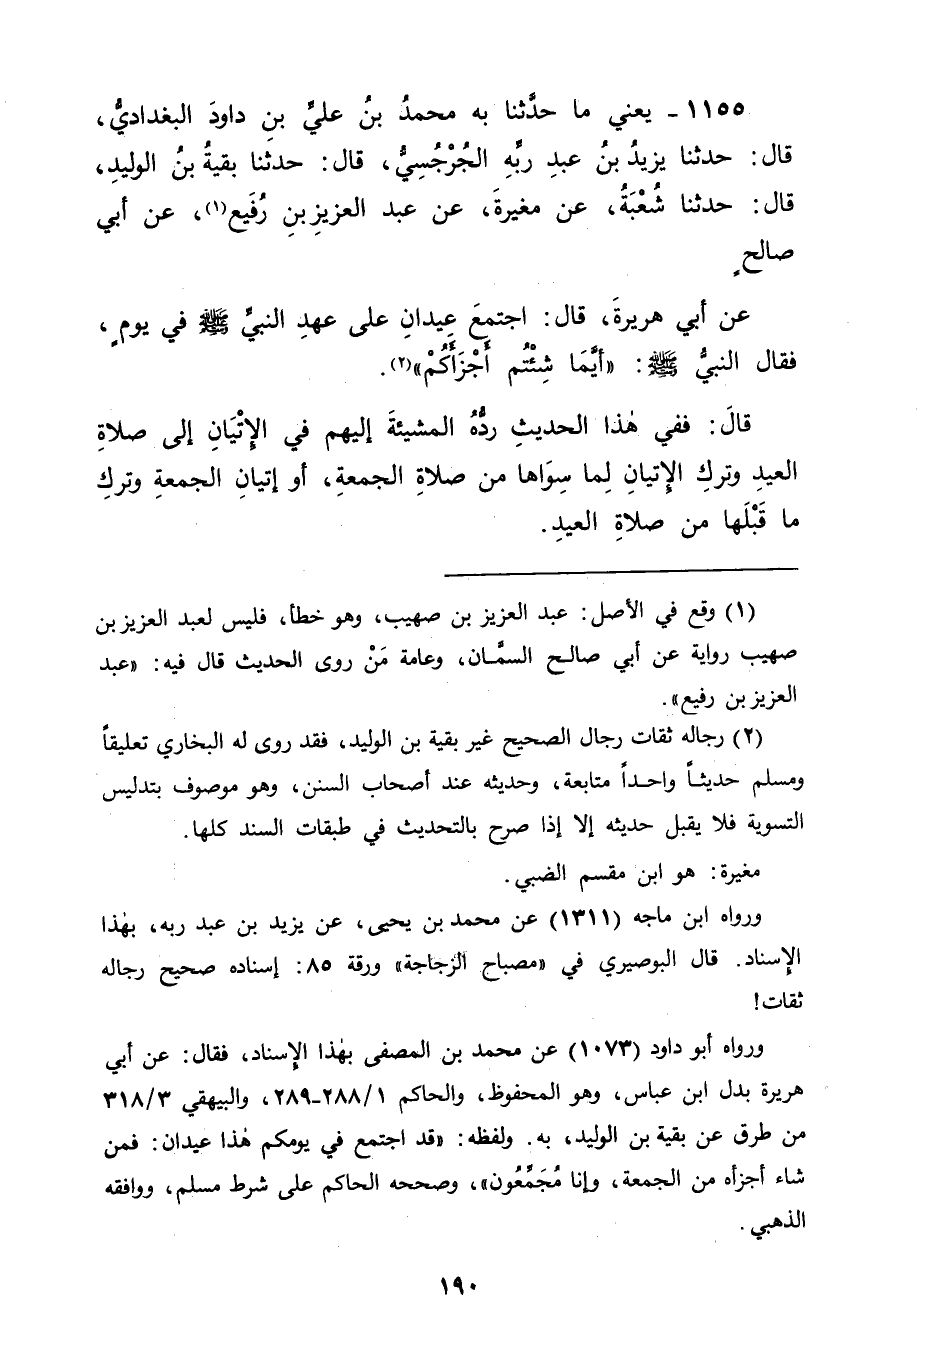 ١١٥٥ ـ يعني ما حدَّثنا به محمدُ بنُ عليِّ بنِ داودَ البغداديُّ،
قال: حدثنا يزيدُ بنُ عبدِ ربِّه الجُرْجُسِيُّ، قال: حدثنا بقيةُ بنُ الوليدِ،
قال: حدثنا شُعْبَةُ، عن مغيرةَ، عن عبد العزيزِ بنِ رُفَيع(١)، عن أبي
صالحٍ
عن أبي هريرةَ، قال: اجتمعَ عِيدانِ على عهدِ النبيِّ ﷺ في يومٍ،
فقال النبيُّ ﷺ: «أيَّمَا شِئْتُم أَجْزَأَكُمْ»(٢).
قالَ: ففي هٰذا الحديثِ ردُّهُ المشيئةَ إليهم في الإِتْيَانِ إلى صلاةِ
العيدِ وتركِ الإِتيانِ لِما سِوَاها من صلاةِ الجمعةِ، أو إتيانِ الجمعةِ وتركِ
ما قَبْلَها من صلاةِ العيدِ.
(١) وقع في الأصل: عبد العزيز بن صهيب، وهو خطأ، فليس لعبد العزيز بن
صهيب رواية عن أبي صالح السمَّان، وعامة مَنْ روى الحديث قال فيه: «عبد
العزيز بن رفيع».
(٢) رجاله ثقات رجال الصحيح غير بقية بن الوليد، فقد روى له البخاري تعليقاً
ومسلم حديثاً واحداً متابعة، وحديثه عند أصحاب السنن، وهو موصوف بتدليس
التسوية فلا يقبل حديثه إلا إذا صرح بالتحديث في طبقات السند كلها.
مغيرة: هو ابن مقسم الضبي.
ورواه ابن ماجه (١٣١١) عن محمد بن يحيى، عن يزيد بن عبد ربه، بهٰذا
الإِسناد. قال البوصيري في «مصباح الزجاجة» ورقة ٨٥: إسناده صحيح رجاله
ثقات!
ورواه أبو داود (١٠٧٣) عن محمد بن المصفى بهٰذا الإِسناد، فقال: عن أبي
هريرة بدل ابن عباس، وهو المحفوظ، والحاكم ٢٨٨/١-٢٨٩، والبيهقي ٣١٨/٣
من طرق عن بقية بن الوليد، به. ولفظه: «قد اجتمع في يومكم هٰذا عيدان: فمن
شاء أجزأه من الجمعة، وإنا مُجَمِّعُون»، وصححه الحاكم على شرط مسلم، ووافقه
الذهبي.
١٩٠